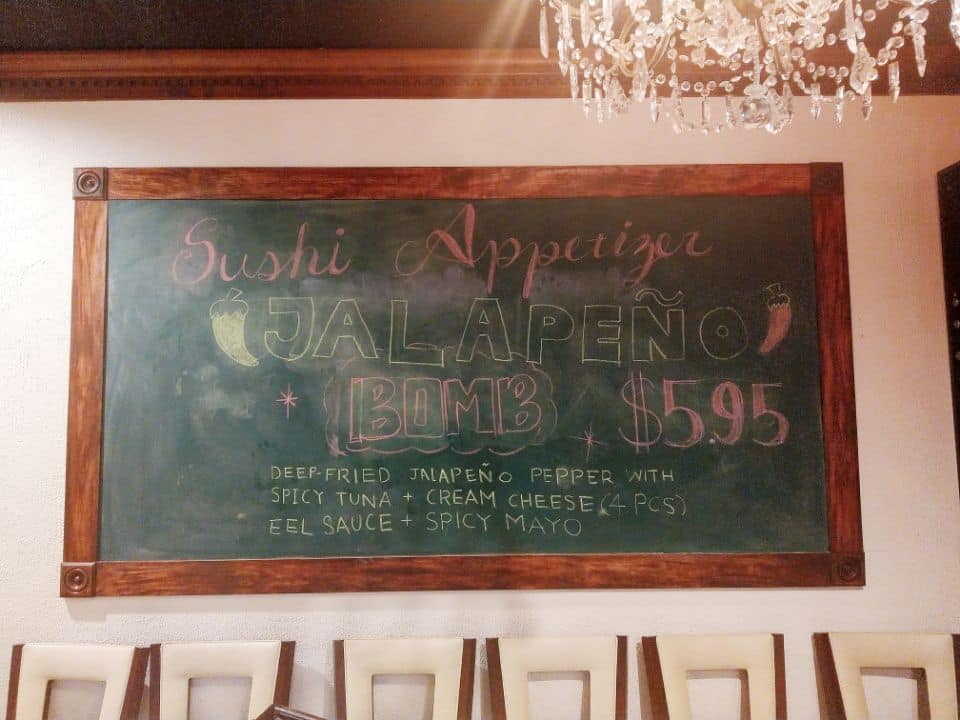 Sushi Appetizer
JALAPEÑO
BOMB $5.95
DEEP-FRIED JALAPEÑO PEPPER WITH
SPICY TUNA + CREAM CHEESE (4 PCS)
EEL SAUCE + SPICY MAYO